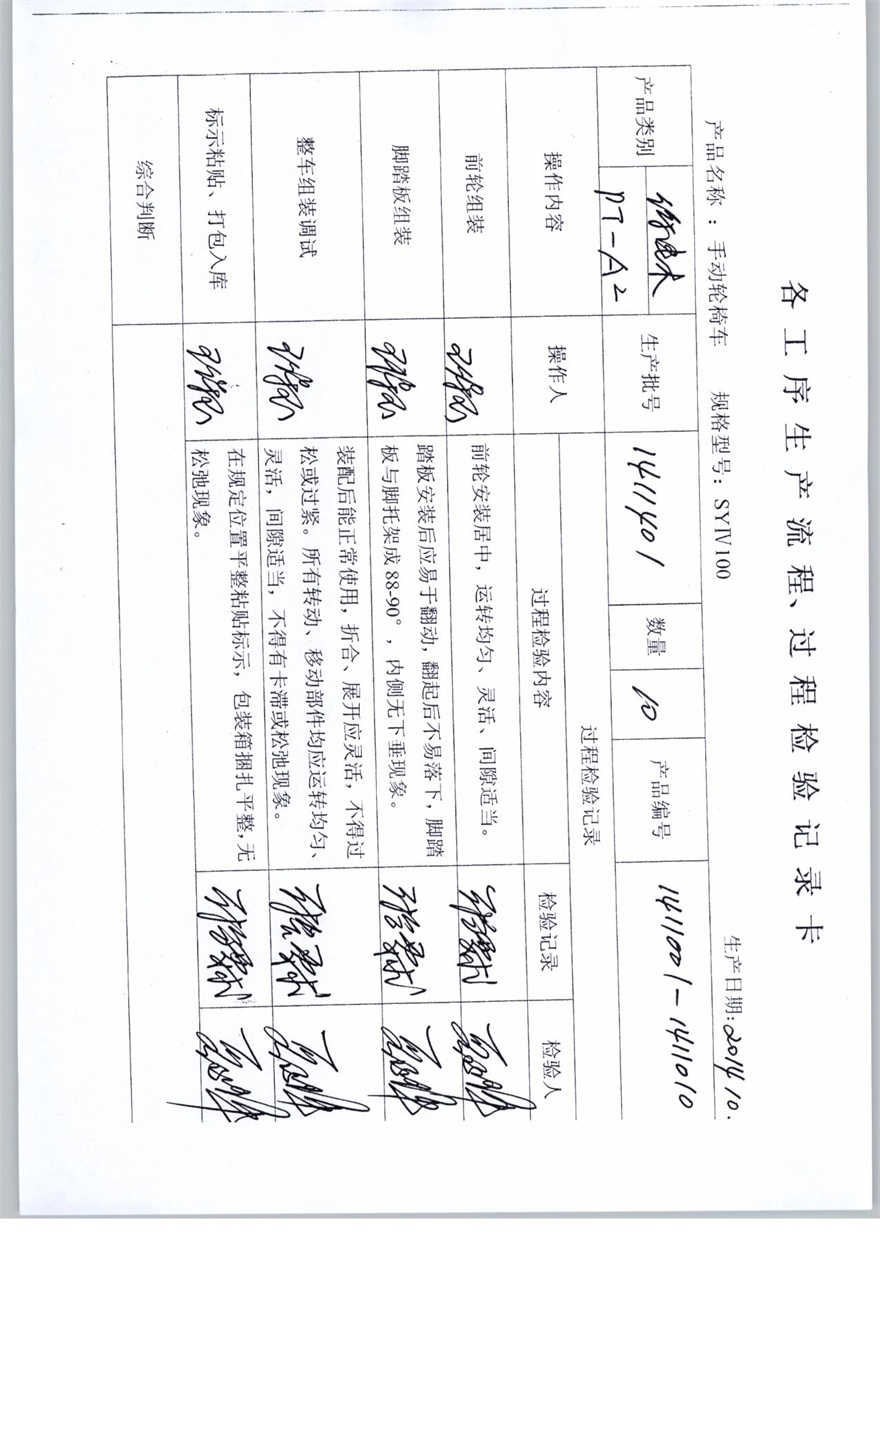 各工序生产流程、过程检验记录卡
产品名称：手动轮椅车 规格型号：SYIV100 生产日期:2014.10.
产品类别 PT-A2 生产批号 1411401 数量 10 产品编号 1411001-1411010
操作内容 操作人 过程检验记录
过程检验内容 检验记录 检验人
前轮组装 前轮安装居中，运转均匀、灵活、间隙适当。
脚踏板组装 踏板安装后应易于翻动，翻起后不易落下，脚踏
板与脚托架成 88-90°，内侧无下垂现象。
整车组装调试 装配后能正常使用，折合、展开应灵活，不得过
松或过紧。所有转动、移动部件均应运转均匀、
灵活，间隙适当，不得有卡滞或松弛现象。
标示粘贴、打包入库 在规定位置平整粘贴标示，包装箱捆扎平整，无
松弛现象。
综合判断